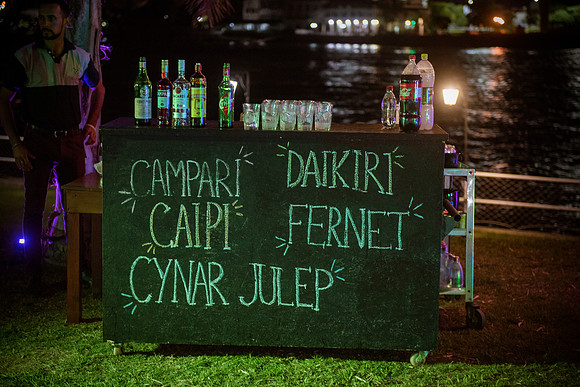 CAMPARI DAIKIRI
CAIPI FERNET
CYNAR JULEP